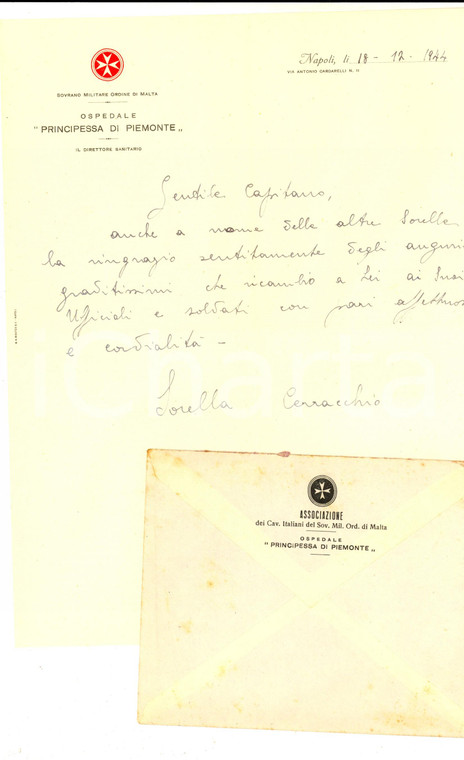 Napoli, li 18 - 12 - 1944
VIA ANTONIO CARDARELLI N. 11
SOVRANO MILITARE ORDINE DI MALTA
OSPEDALE
" PRINCIPESSA DI PIEMONTE „
IL DIRETTORE SANITARIO
Gentile Capitano,
anche a nome delle altre Sorelle
la ringrazio sentitamente degli auguri
graditissimi che ricambio a Lei ai Suoi
Ufficiali e soldati con pari affettuos
e cordialità -
Sorella Cerracchio
iCharta
ASSOCIAZIONE
dei Cav. Italiani del Sov. Mil. Ord. di Malta
OSPEDALE
" PRINCIPESSA DI PIEMONTE „